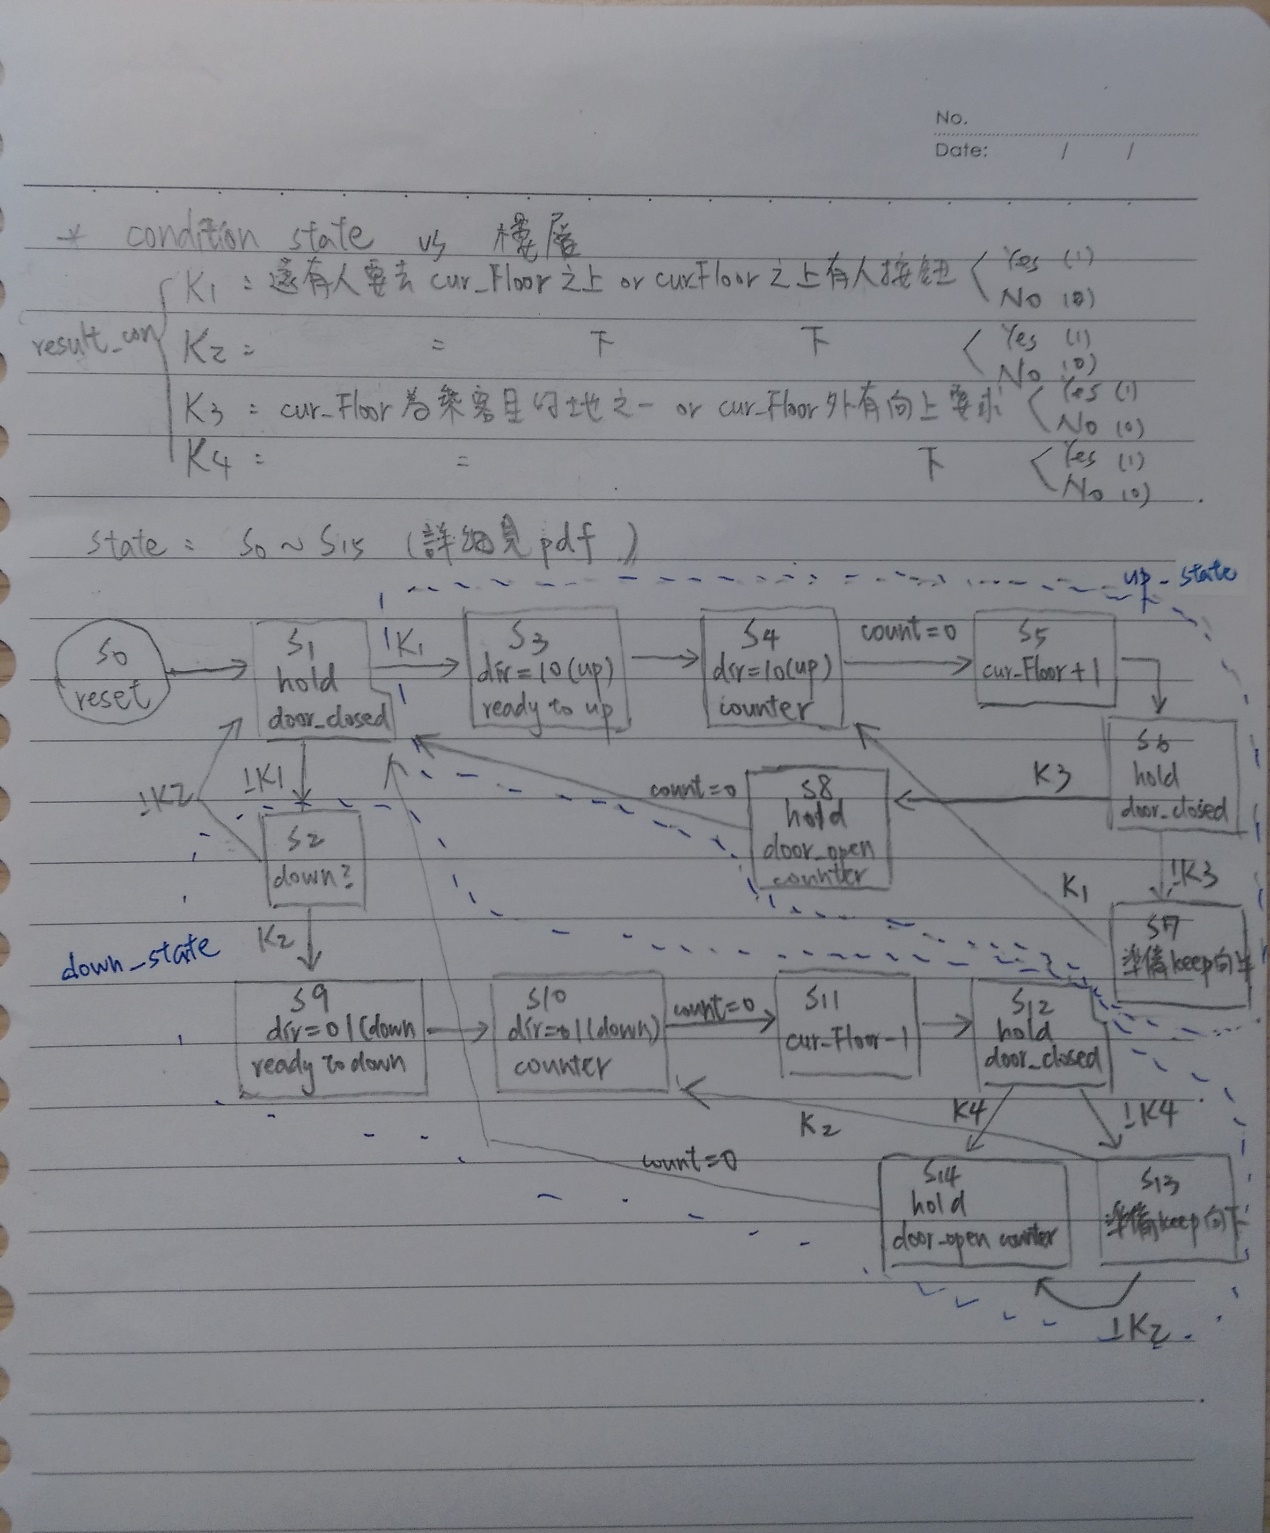 No.
Date: / /
* condition state vs 樓層
result_con
K1 : 還有人要去 cur_Floor 之上 or cur_Floor 之上有人按鈕 Yes (1)
No (0)
K2 : = 下 下 Yes (1)
No (0)
K3 : cur_Floor 為乘客目的地之一 or cur_Floor 外有向上要求 Yes (1)
No (0)
K4 : = 下 Yes (1)
No (0)
state : S0 ~ S15 (詳細見pdf)
up_state
S0
reset
S1
hold
door_closed
K1
S3
dir=10(up)
ready to up
S4
dir=10(up)
counter
count=0
S5
cur_Floor+1
S6
hold
door_closed
K3
count=0
S8
hold
door_open
counter
!K2
!K1
S2
down?
K1
!K3
S7
準備keep向上
K2
down_state
S9
dir=01(down
ready to down
S10
dir=01(down)
counter
count=0
S11
cur_Floor-1
S12
hold
door_closed
K2
K4
!K4
count=0
S14
hold
door_open counter
S13
準備keep向下
!K2